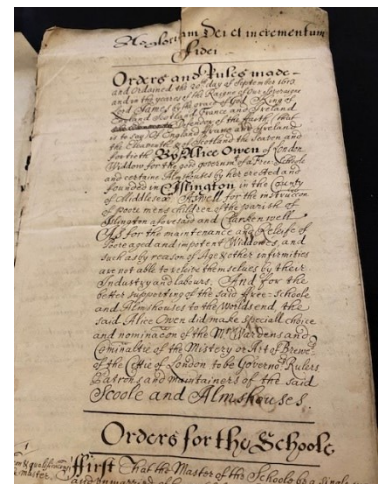 Ad gloriam Dei et incrementum
Fidei
Orders and Rules made
and Ordained the 20th day of September 1613
and in the yeares of the Raigne of our Soveraigne
Lord James by the grace of God King of
England Scotland France and Ireland
Defendor of the faith (that
is to say) of England France and Ireland
the Eleaventh & of Scotland the Seaven and
fortieth By Alice Owen of London
Widdow for the good governmt of a Free Schoole
and certaine Almshouses by her erected and
founded in Islington in the County
of Middlesex Aswell for the instruccon
of poore mens children of the parish of
Islington aforesaid and Clarkenwell
As for the maintenance and Releife of
Poore aged and impotent Widdowes, and
such as by reason of Age & other infirmities
are not able to releive themselves by their
Industry and labours, And for the
better supporting of the said Free-schoole
and Almshouses to the Worlds end, the
said Alice Owen did make speciall choice
and nominacon of the Mr Wardens and
Cominaltie of the Mistery or Art of Brewers
of the Citie of London to be Governors Rulers
Patrons and Maintainers of the said
Scoole and Almshouses.
Orders for the Schoole
ffirst That the Master of the Schoole be a single
master.